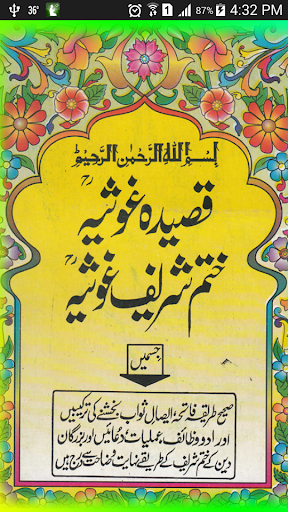 36°
87% 4:32 PM
بسم الله الرحمن الرحیم
قصیدہ غوثیہ
ختم شریف غوثیہ
جسمیں
صحیح طریقہ فاتحہ ایصال ثواب بخشنے کی ترکیبیں
اور ادو وظائف عملیات، دعائیں اور بزرگان
دین کے ختم شریف کے طریقے نہایت وضاحت سے درج ہیں